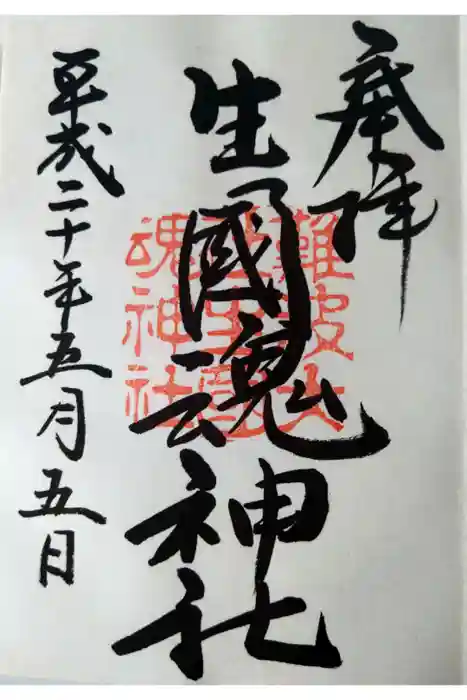 奉拝
生國魂神社
難波大
社生國
魂神社
平成二十年五月五日